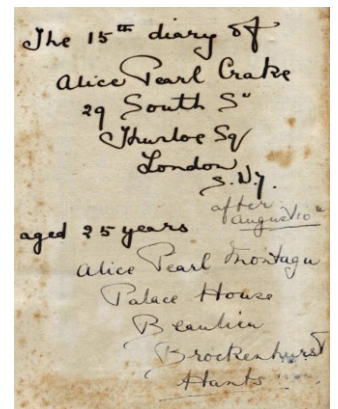 The 15th diary of
Alice Pearl Crake
29 South St
Thurloe Sq
London
S.W.7.
after
August 10th
aged 25 years
Alice Pearl Montagu
Palace House
Beaulieu
Brockenhurst
Hants